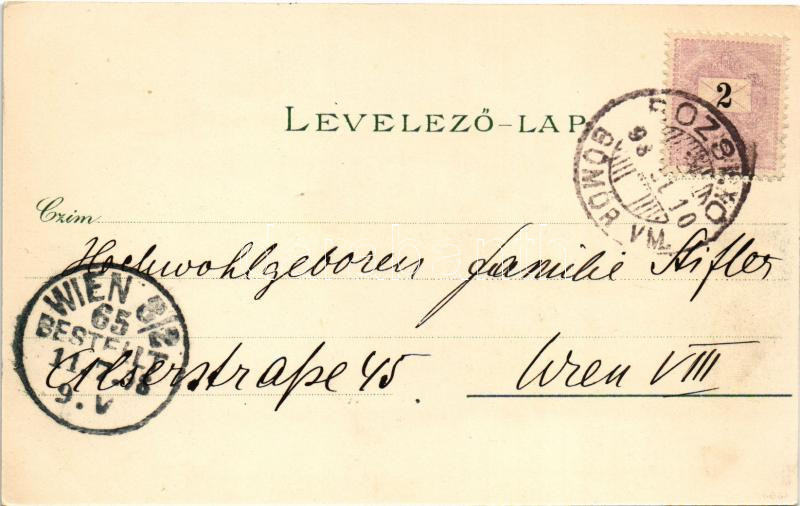 2
LEVELEZŐ-LAP
ROZSNYÓ
98
10
GÖMÖR VM.
Czim
Hochwohlgeboren Familie Stifler
Alserstraße 45 Wien VIII
WIEN 8/2
65
BESTELLT
11.
9. V